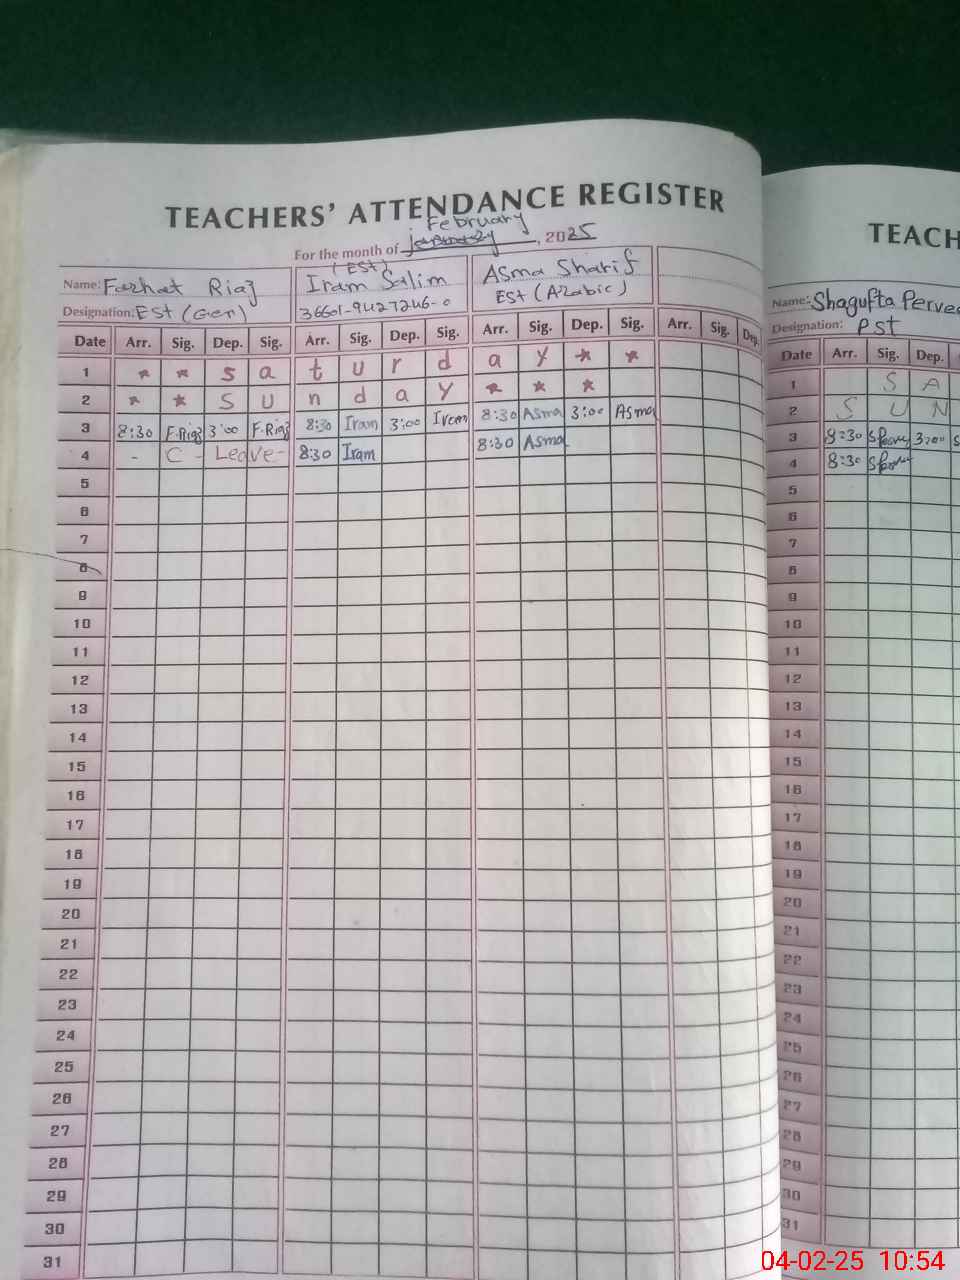 TEACHERS' ATTENDANCE REGISTER
February
For the month of january, 2025
Name: Farhat Riaz
Designation: EST (Gen)
(EST)
Iram Salim
36601-9427246-0
Asma Sharif
EST (Arabic)
Date Arr. Sig. Dep. Sig. Arr. Sig. Dep. Sig. Arr. Sig. Dep. Sig. Arr. Sig. Dep.
1 * * s a t u r d a y * *
2 * * S U n d a y * * *
3 8:30 F.Riaz 3:00 F.Riaz 8:30 Iram 3:00 Iram 8:30 Asma 3:00 Asma
4 - C - Leave - 8:30 Iram 8:30 Asma
5
6
7
8
9
10
11
12
13
14
15
16
17
18
19
20
21
22
23
24
25
26
27
28
29
30
31
TEACH
Name: Shagufta Perve
Designation: PST
Date Arr. Sig. Dep.
1 S A
2 S U N
3 8:30 3:00 S
4 8:30
5
6
7
8
9
10
11
12
13
14
15
16
17
18
19
20
21
22
23
24
25
26
27
28
29
30
31
04-02-25 10:54